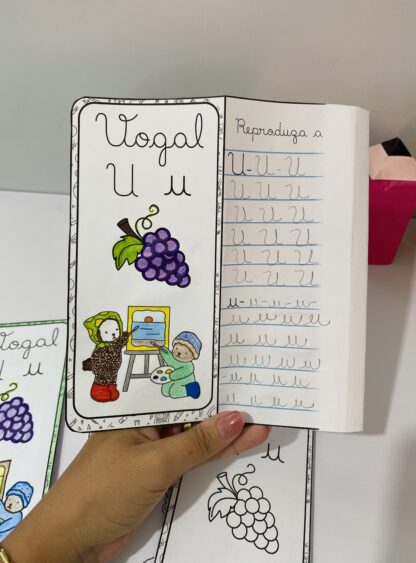 Vogal
U u
Reproduza a
U-U-U
U U U
U U U
U U U
U U U
U U U
u-u-u-u
u u u u u
u u u u
u u u u u
u u u u u
u u u u u
Vogal
U u
u